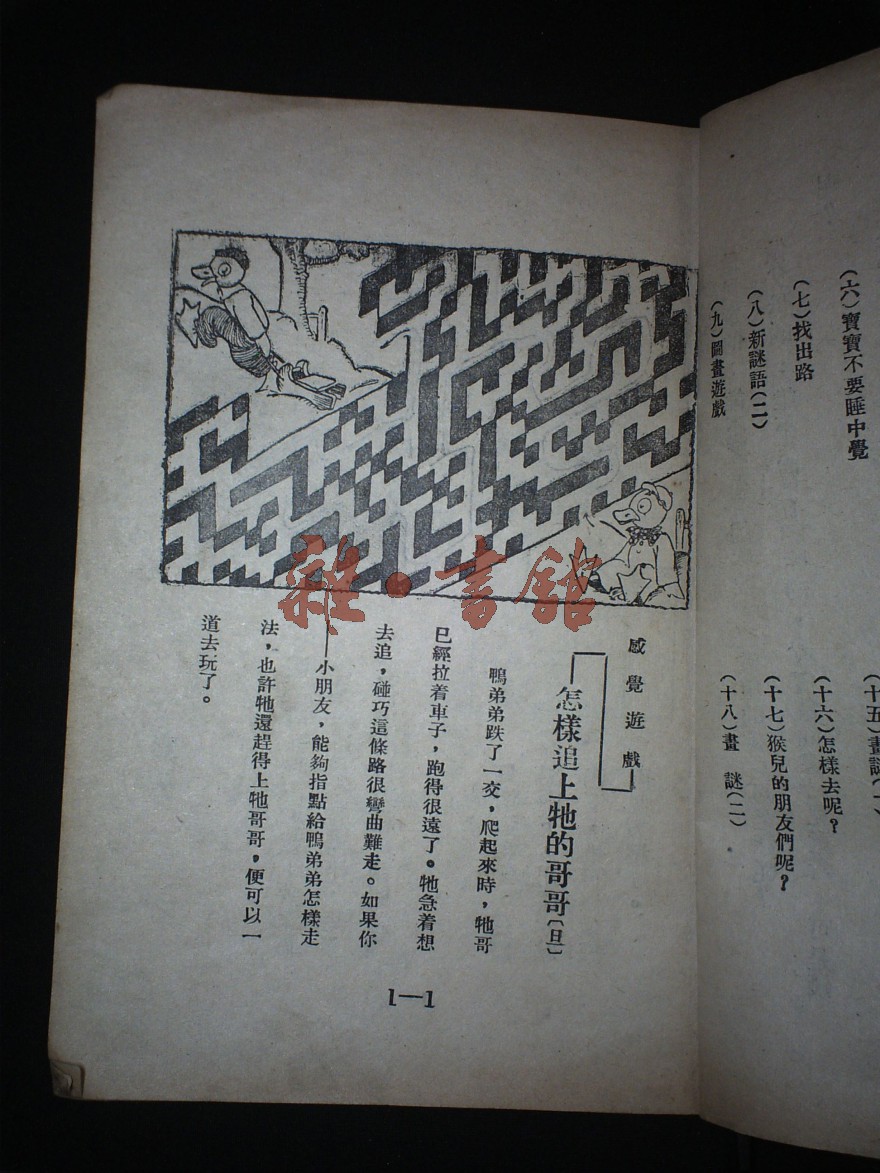 (六)寶寶不要睡中覺
(七)找出路
(八)新謎語(二)
(九)圖畫遊戲
(十六)怎樣去呢?
(十七)猴兒的朋友們呢?
(十八)畫 謎(二)
感覺遊戲
怎樣追上牠的哥哥(旦)
鴨弟弟跌了一交,爬起來時,牠哥
已經拉着車子,跑得很遠了。牠急着想
去追,碰巧這條路很彎曲難走。如果你
——小朋友,能夠指點給鴨弟弟怎樣走
法,也許牠還趕得上牠哥哥,便可以一
道去玩了。
1—1
雜·書館